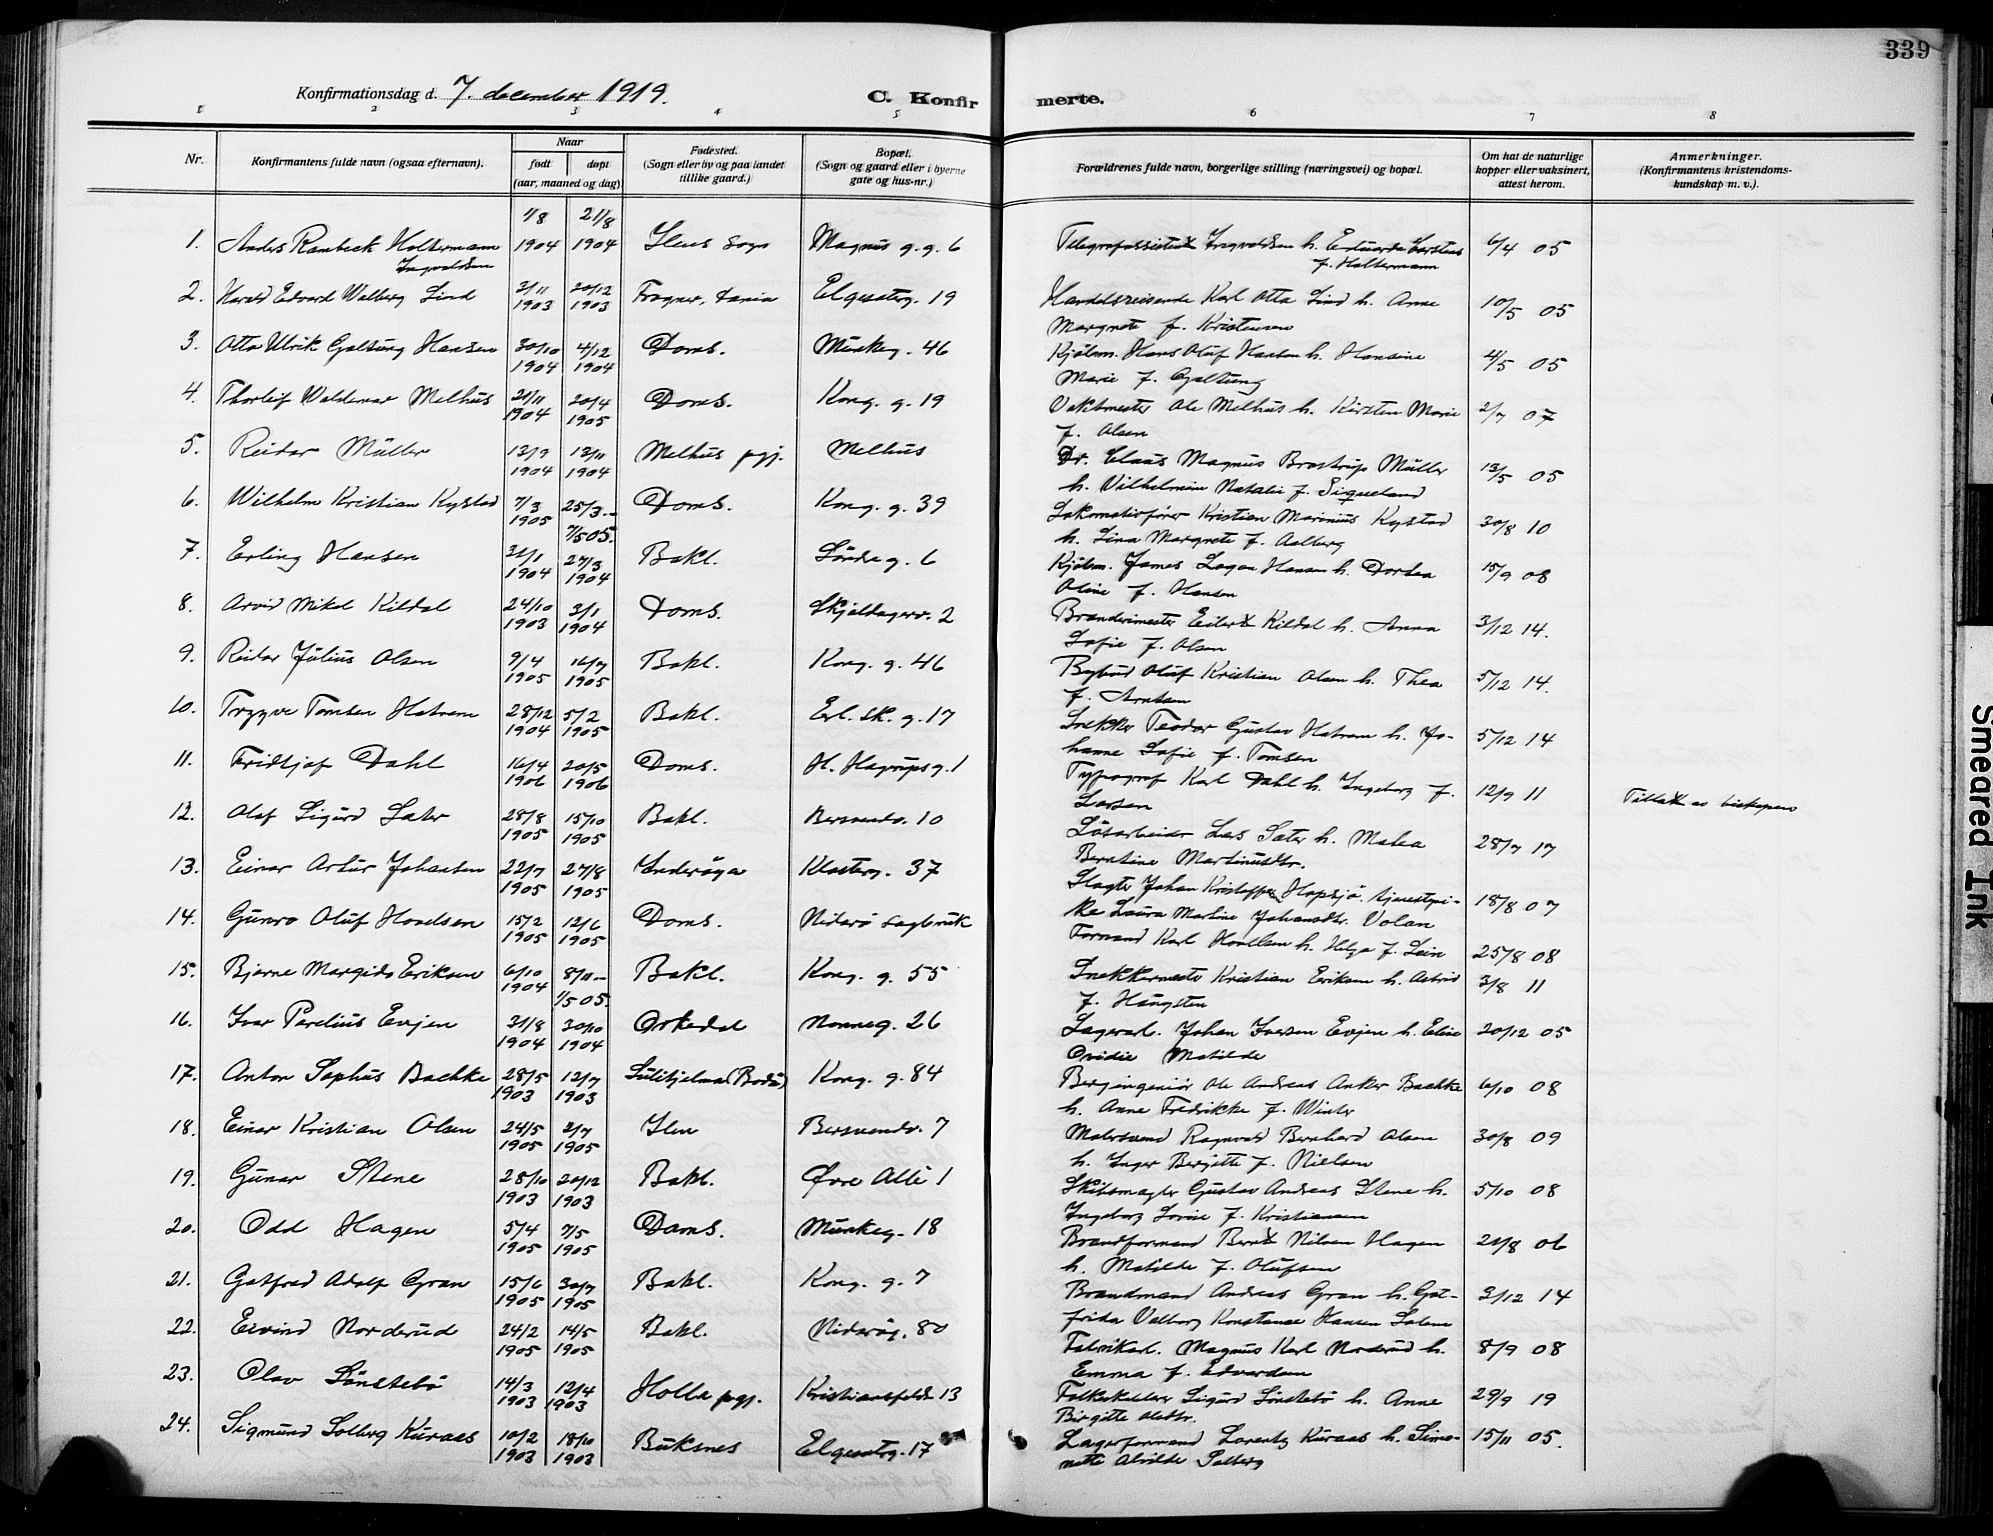 339
Konfirmationsdag d. 7. december 1919.
C. Konfirmerte.
1 2 3 4 5 6 7 8
Nr.
Konfirmantens fulde navn (ogsaa efternavn).
Naar
født
døpt
(aar, maaned og dag)
Fødested.
(Sogn eller by og paa landet
tillike gaard.)
Bopæl.
(Sogn og gaard eller i byerne
gate og hus-nr.)
Forældrenes fulde navn, borgerlige stilling (næringsvei) og bopæl.
Om hat de naturlige
kopper eller vaksinert,
attest herom.
Anmerkninger.
(Konfirmantens kristendoms-
kundskap m. v.).
1. Anders Rambeck Holtermann Ingvaldsen 1/8 1904 21/8 1904 Ilens sogn Magnus g.g. 6 Telegrafassistent Ingvaldsen h. Eduarda Carstens f. Holtermann 6/4 05
2. Harald Edvard Walberg Lind 3/11 1903 20/12 1903 Elgesetrg. 19 Handelsreisende Karl Otto Lind h. Anne Margrete f. Kristensen 10/5 05
3. Otto Ulrik Galtung Hansen 30/10 1904 4/12 1904 Doms. Munkeg. 46 Kjøbm. Hans Oluf Hansen h. Hansine Marie f. Galtung 4/5 05
4. Thorleif Waldemar Melhus 21/11 1904 20/4 1905 Doms. Kong. g. 19 Vaktmester Ole Melhus h. Kirsten Marie f. Olsen 2/7 07
5. Reidar Müller 13/9 1904 13/11 1904 Melhus pgj. Melhus Dr. Claus Magnus Brostrup Müller h. Vilhelmine Natalie f. Siqueland 13/5 05
6. Wilhelm Kristian Kystad 7/3 1905 25/3.- 7/5 05. Doms. Kong. g. 39 Lokomotivfører Kristian Marinius Kystad h. Lina Margrete f. Aalberg 30/8 10
7. Erling Hansen 31/1 1904 27/3 1904 Bakl. Søndreg. 6 Kjøbm. James Logan Hansen h. Dortea Oline f. Hansen 15/9 08
8. Arvid Mikal Kildal 24/10 1903 3/1 1904 Doms. Skjoldagerv. 2 Eilert Kildal h. Anna Sofie f. Olsen 3/12 14.
9. Reidar Julius Olsen 9/4 1905 16/7 1905 Bakl. Kong. g. 46 Bybud Oluf Kristian Olsen h. Thea f. Arntsen 5/12 14.
10. Trygve Tomsen Hatrem 28/12 1904 5/2 1905 Bakl. Erl. Sk. g. 17 Snekker Teodor Gustav Hatrem h. Johanne Sofie f. Tomsen 5/12 14
11. Fridtjof Dahl 16/4 1906 20/5 1906 Doms. H. Hagrupsg. 1 Typograf Karl Dahl h. Ingeborg f. Larsen 12/9 11 Tillatt av biskopen
12. Olaf Sigurd Sater 28/8 1905 15/10 1905 Bakl. Bersvendv. 10 Løsarbeider Lars Sater h. Malea Berntine Martinusdtr. 28/7 17
13. Einar Artur Johansen 22/7 1905 27/8 1905 Inderøya Klosterg. 37 Slagter Johan Kristoffer Hopsjø. tjenestepike Laura Martine Johansdtr. Volan 18/8 07
14. Gunvo Oluf Hovelsen 15/2 1905 12/6 1905 Doms. Nidarø sagbruk Formand Karl Hovelsen h. Helga f. Lein 25/8 08
15. Bjarne Margido Eriksen 6/10 1904 8/11- 1/5 05. Bakl. Kong. g. 55 Snekkermester Kristian Eriksen h. Astrid f. Haugsten 3/8 11
16. Ivar Parelius Evjen 31/8 1904 30/10 1904 Orkedal Nonneg. 26 Lagerarb. Johan Iversen Evjen h. Elise Ovidie Matilde 20/12 05
17. Anton Sophus Bachke 28/5 1903 12/7 1903 Sulitjelma (Bodø) Kong. g. 84 Bergingeniør Ole Andreas Anker Bachke h. Anne Fredrikke f. Winter 6/10 08
18. Einar Kristian Olsen 24/5 1905 2/7 1905 Ilen Bersvendv. 7 Malersvend Ragnvald Bernhard Olsen h. Inger Bergitte f. Nielsen 30/8 09
19. Gunar Stene 28/10 1903 20/12 1903 Bakl. Øvre Allé 1 Skibsmægler Gustav Andreas Stene h. Ingeborg Lovise f. Kristiansen 5/10 08
20. Odd Hagen 5/4 1905 7/5 1905 Doms. Munkeg. 18 Brandformand Bernt Nilsen Hagen h. Matilde f. Olufsen 21/8 06
21. Gotfred Adolf Gran 15/6 1905 30/7 1905 Bakl. Kong. g. 7 Brandmand Andreas Gran h. Gotfrida Valborg Konstance Hansen Solem 3/12 14
22. Eivind Norderud 24/2 1905 14/5 1905 Bakl. Nidarøg. 80 Fabrikarb. Magnus Karl Norderud h. Emma f. Edvardsen 8/9 08
23. Olav Sønstebø 14/3 1903 12/4 1903 Holla pgj. Kristiansfeldt 13 Sigurd Sønstebø h. Anne Birgitte Olsdtr. 29/9 19
24. Sigmund Solberg Kuraas 10/2 1903 18/10 1903 Buksnes Elgesetrg. 17 Lagerformand Lorentz Kuraas h. Simonette Alvilde Solberg 15/11 05.
Smeared Ink